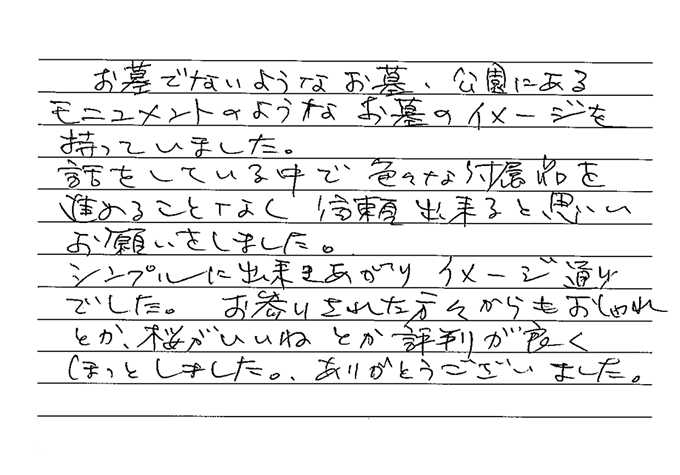 お墓でないようなお墓、公園にある
モニュメントのようなお墓のイメージを
持っていました。
話をしている中で色々な付属品を
進めることなく信頼出来ると思い
お願いをしました。
シンプルに出来あがり イメージ通り
でした。 お参りされた方々からもおしゃれ
とか、桜がいいね とか 評判が良く
ほっとしました。、ありがとうございました。